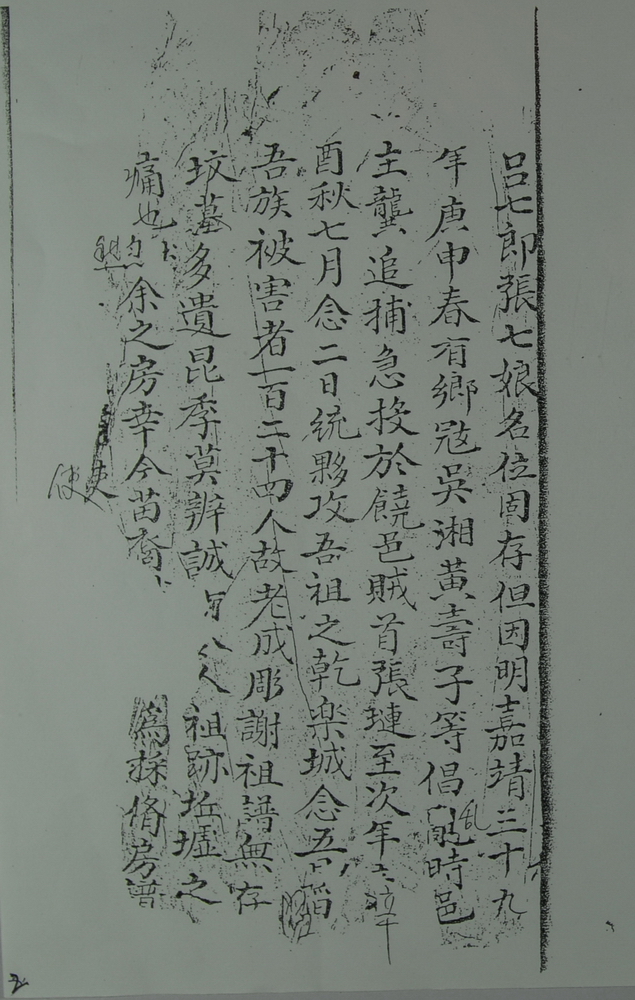 吕七郎張七娘名位固存但因明嘉靖三十九
年庚申春有鄉冦吳湘黃壽子等倡亂時邑
主龔追捕急投於饒邑賊首張璉至次年辛
酉秋七月念二日統夥攻吾祖之乾樂城念五日
吾族被害者一百二十四人故老成彫謝祖譜無存
坟墓多遺昆季莫辨誠祖跡坵墟之
痛也余之房幸今苗裔為採脩房譜
使
2